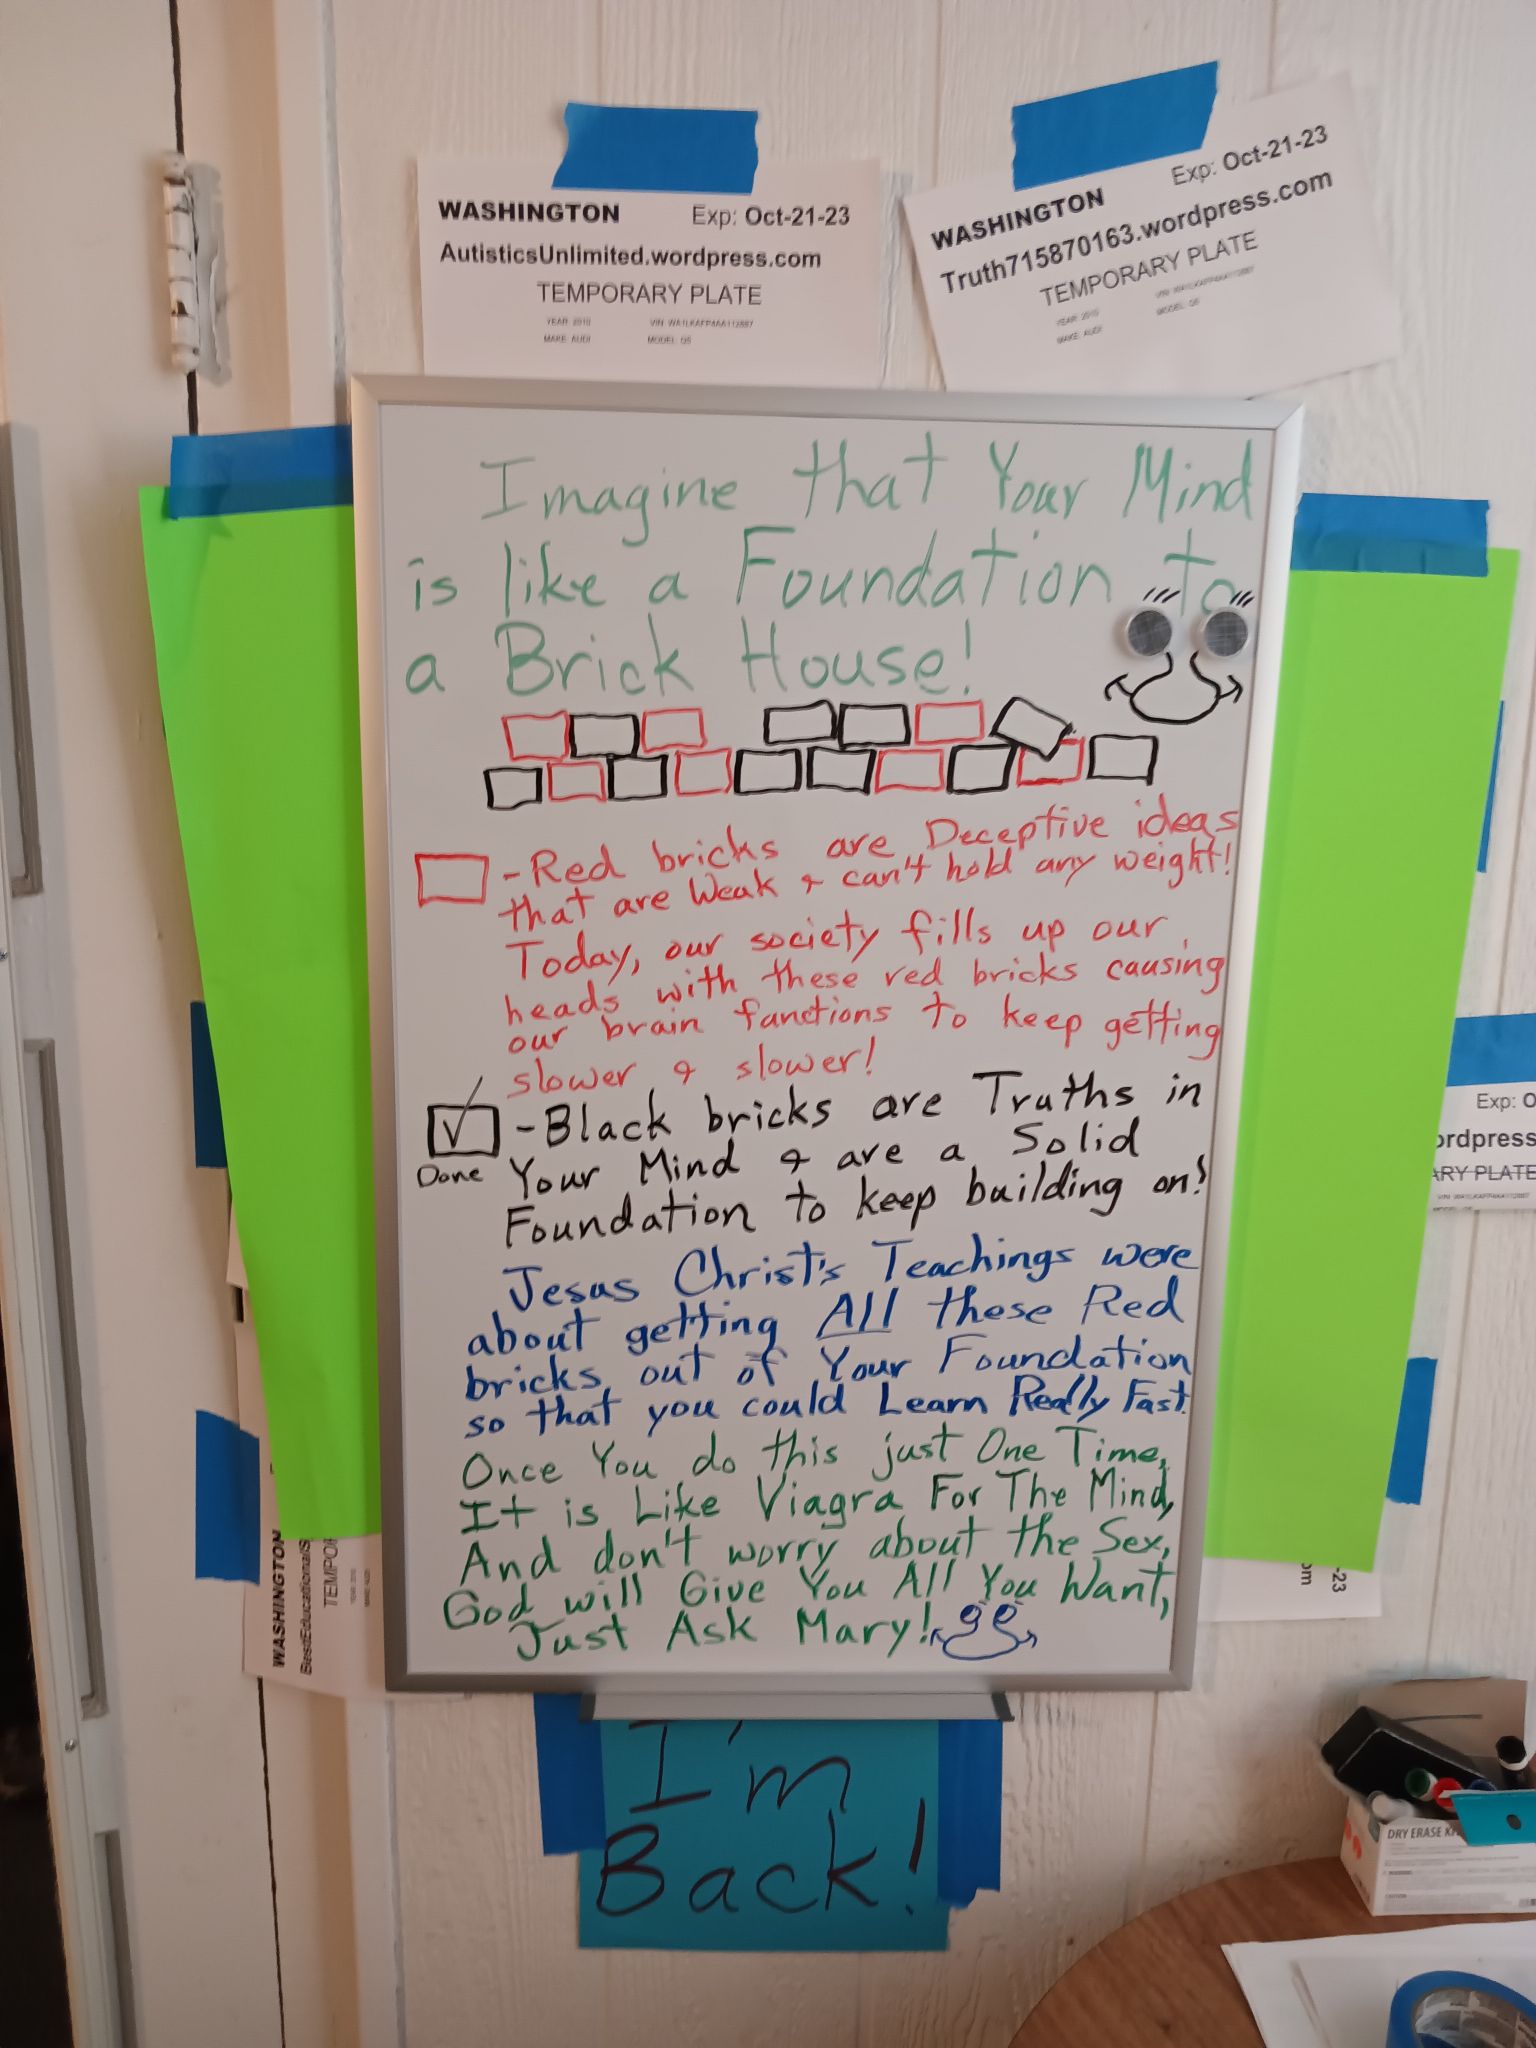 WASHINGTON Exp: Oct-21-23
AutisticsUnlimited.wordpress.com
TEMPORARY PLATE
YEAR: 2010
MAKE: AUDI MODEL: Q5
WASHINGTON Exp: Oct-21-23
Truth715870163.wordpress.com
TEMPORARY PLATE
YEAR: 2010
MAKE: AUDI MODEL: Q5
Imagine that Your Mind
is like a Foundation to
a Brick House!
- Red bricks are Deceptive ideas
that are Weak & can't hold any weight!
Today, our society fills up our
heads with these red bricks causing
our brain functions to keep getting
slower & slower!
- Black bricks are Truths in
Done
Your Mind & are a Solid
Foundation to keep building on!
Jesus Christ's Teachings were
about getting All these Red
bricks out of Your Foundation
so that you could Learn Really Fast.
Once You do this just One Time,
It is Like Viagra For The Mind,
And don't worry about the Sex,
God will Give You All You Want,
Just Ask Mary!
I'm
Back!
Exp: O
ordpress
ARY PLATE
WASHINGTON
BestEducational
TEMPO
-23
om
DRY ERASE
CAUTION